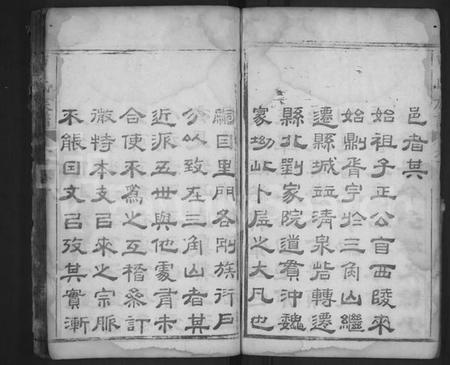 邑者其
始祖子正公自西陵來
始剏胥宇於三角山繼
遷縣城茲清泉砦轉遷
縣北劉家院道貫沖魏
家坳此卜居之大凡也
嗣回里門各剏族衍戶
分以致在三角山者其
近派五世與他處者未
合使不為之互稽參訂
微特本支㠯來之宗脈
不能因文㠯攷其實漸